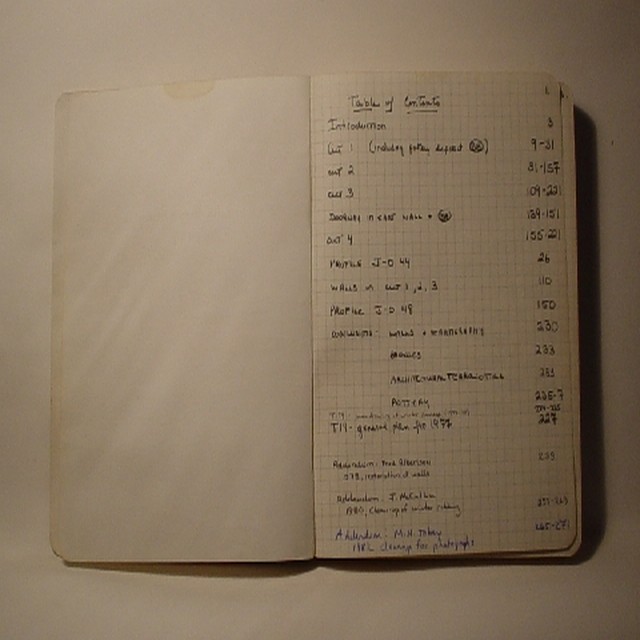 1
Table of Contents
Introduction 3
Cut 1 (including pottery deposit) 9-31
cut 2 31-157
cut 3 109-221
Doorway in east wall + 139-151
cut 4 155-221
Profile J-O 44 26
Walls in cut 1, 2, 3 110
Profile J-O 48 150
Conclusions: walls + stratigraphy 230
Bronzes 233
Architectural Terracottas 233
Pottery 235-7
T14- general plan for 1977 227
Addendum: 239
1978, restoration of walls
Addendum: J. 
1980, cleanup of winter
Addendum: M.H.
1982 cleanup for photographs